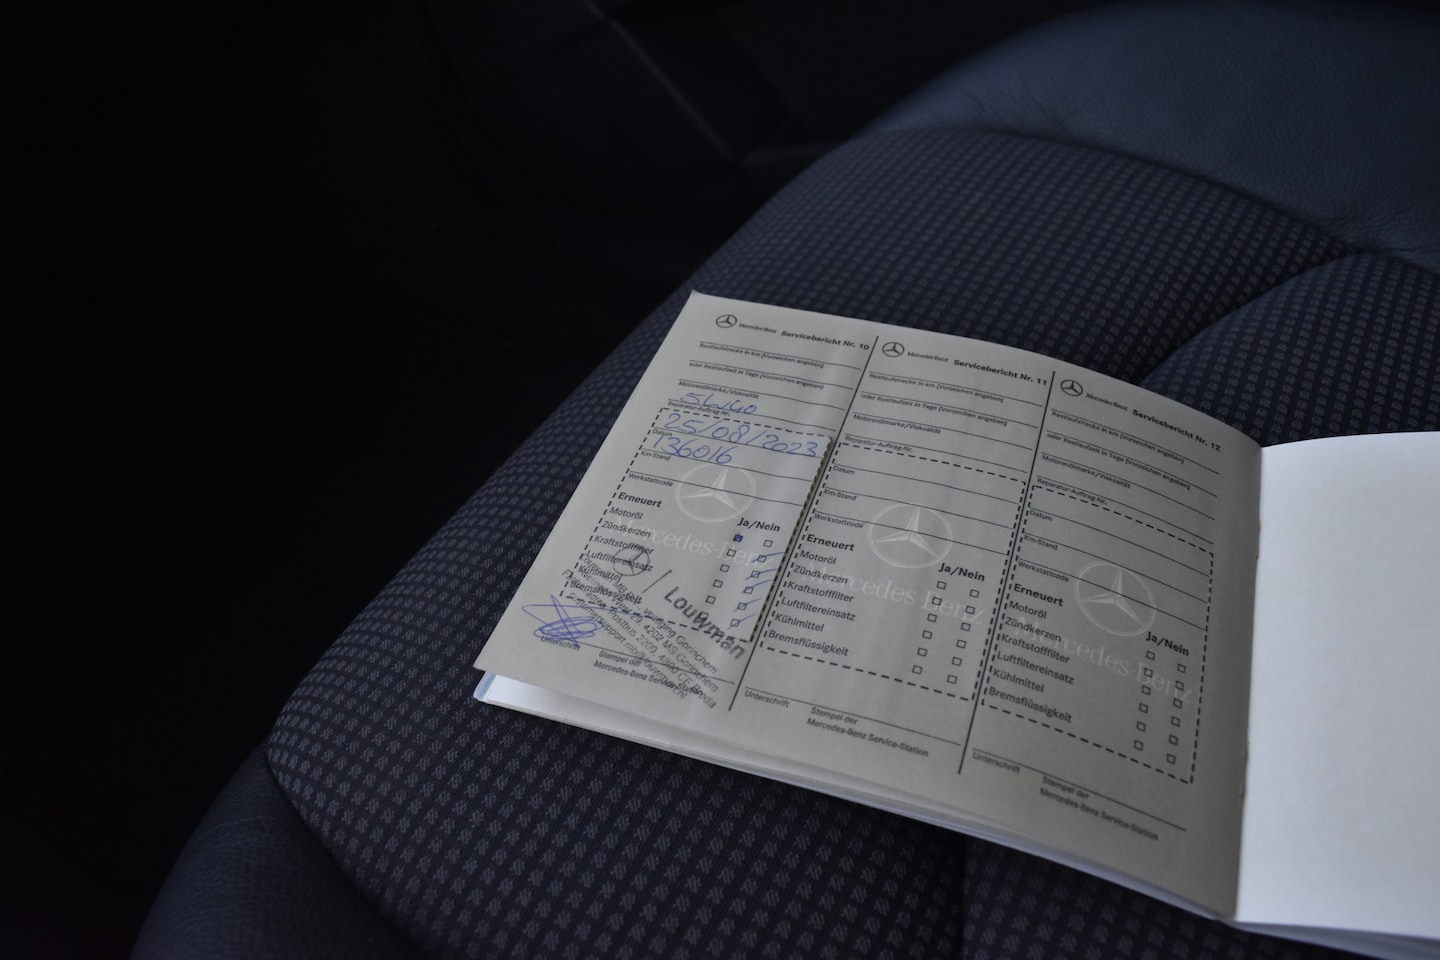 Mercedes-Benz Servicebericht Nr. 10
Restlaufstrecke in km (Vorzeichen angeben)
oder Restlaufzeit in Tage (Vorzeichen angeben)
Motorenölmarke/Viskosität
5W40
Reparatur-Auftrag-Nr.
25/08/2023
Datum
136016
Km-Stand
Werkstattcode
Erneuert Ja/Nein
Motoröl
Zündkerzen
Kraftstofffilter
Luftfiltereinsatz
Kühlmittel
Bremsflüssigkeit
Mercedes-Benz
Louwman
Gorinchem
4202 MS Gorinchem
Postbus 2200, 4800 CE Breda
Unterschrift
Stempel der
Mercedes-Benz Service-Station
Mercedes-Benz Servicebericht Nr. 11
Restlaufstrecke in km (Vorzeichen angeben)
oder Restlaufzeit in Tage (Vorzeichen angeben)
Motorenölmarke/Viskosität
Reparatur-Auftrag-Nr.
Datum
Km-Stand
Werkstattcode
Erneuert Ja/Nein
Motoröl
Zündkerzen
Kraftstofffilter
Luftfiltereinsatz
Kühlmittel
Bremsflüssigkeit
Mercedes-Benz
Unterschrift
Stempel der
Mercedes-Benz Service-Station
Mercedes-Benz Servicebericht Nr. 12
Restlaufstrecke in km (Vorzeichen angeben)
oder Restlaufzeit in Tage (Vorzeichen angeben)
Motorenölmarke/Viskosität
Reparatur-Auftrag-Nr.
Datum
Km-Stand
Werkstattcode
Erneuert Ja/Nein
Motoröl
Zündkerzen
Kraftstofffilter
Luftfiltereinsatz
Kühlmittel
Bremsflüssigkeit
Mercedes-Benz
Unterschrift
Stempel der
Mercedes-Benz Service-Station